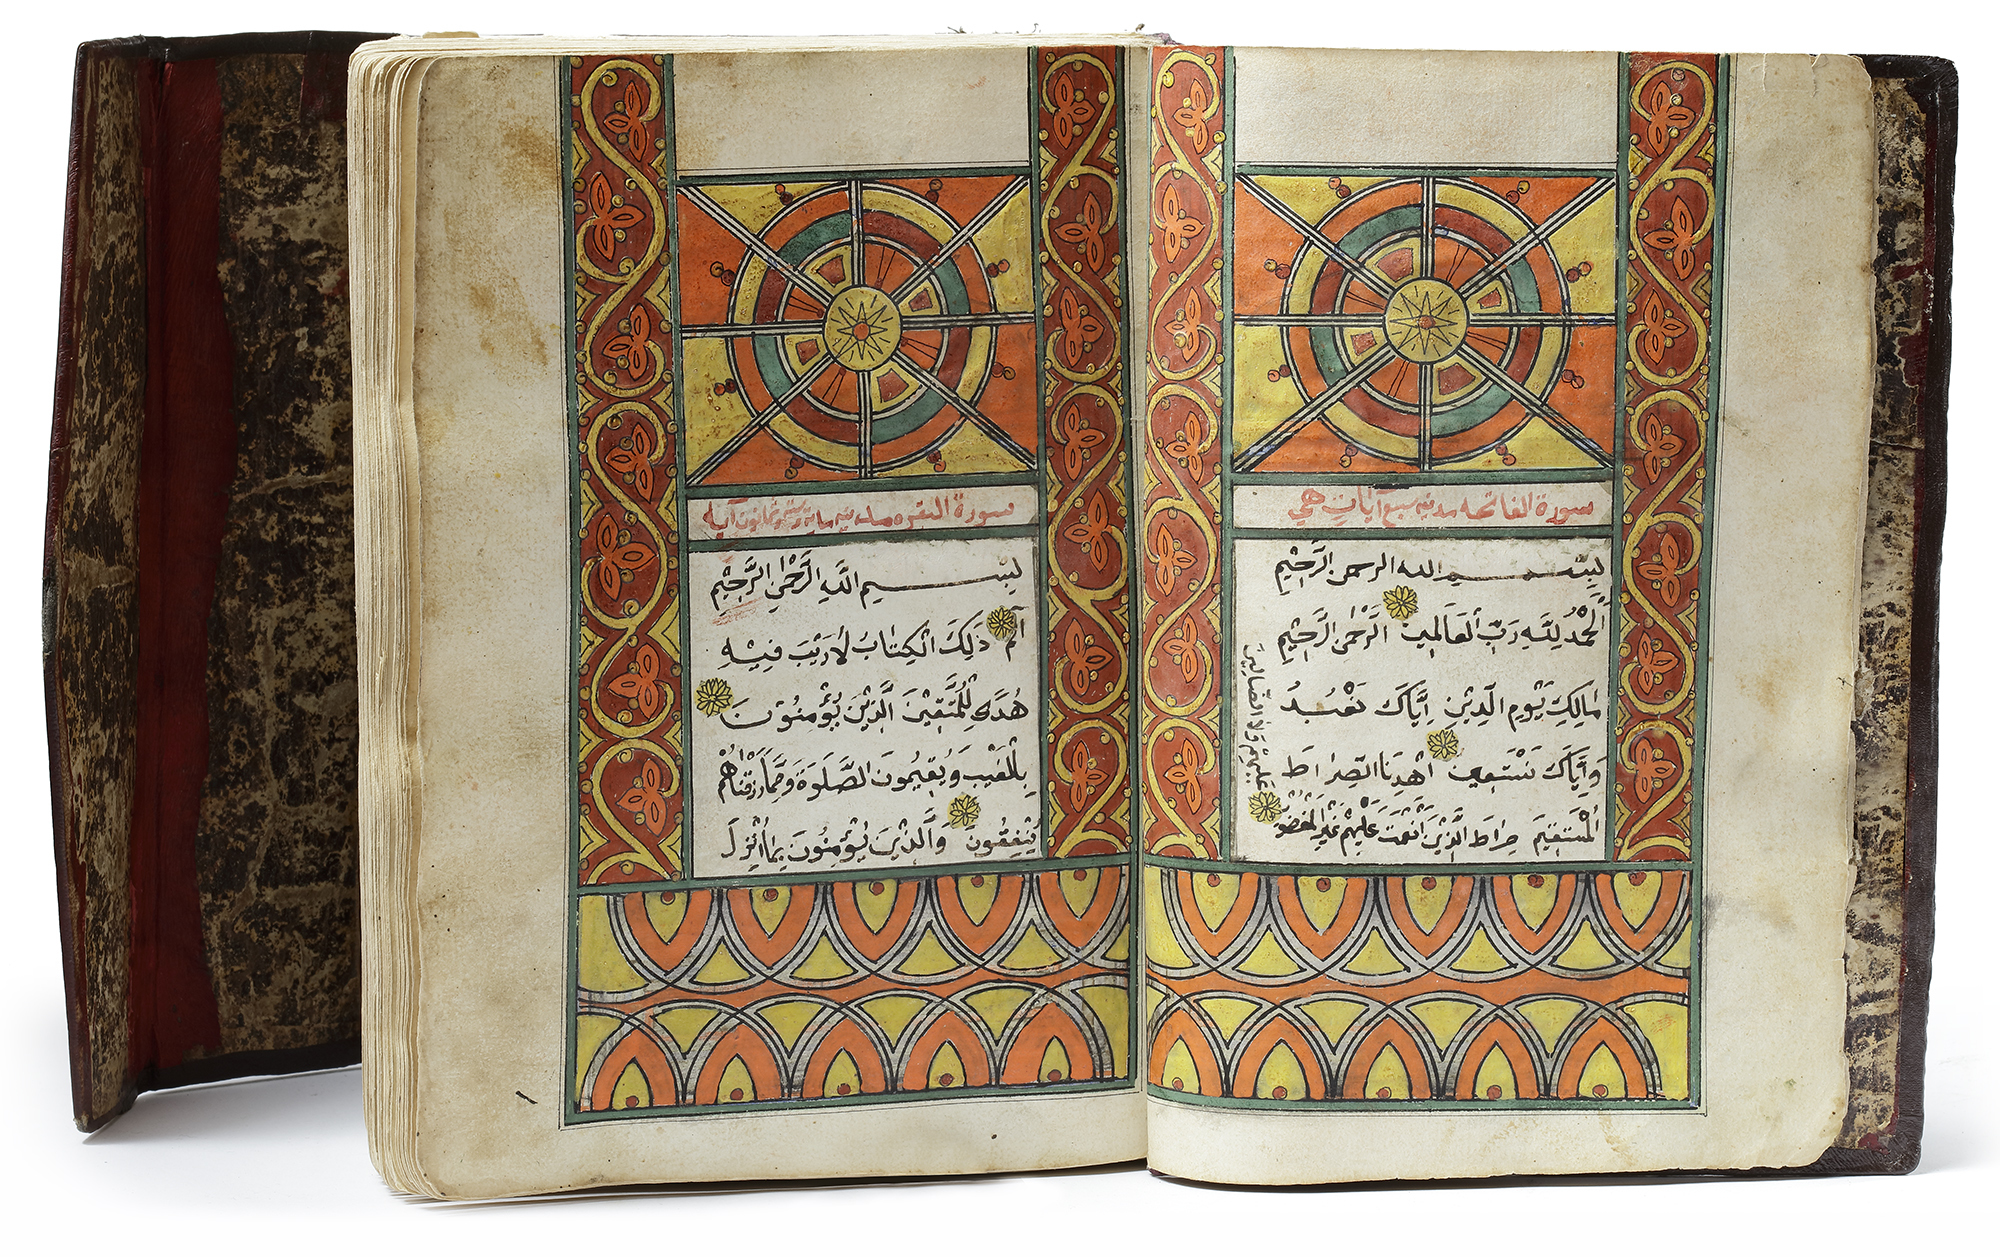 سورة الفاتحه مدنيه سبع آيات هي
بِسْمِ الله الرحمن الرَّحِيْمِ
اَلْحَمْدُ لِلَّهِ رَبِّ الْعَالَمِيْنَ الرَّحْمٰنِ الرَّحِيْمِ
مَالِكِ يَوْمِ الدِّيْنِ اِيَّاكَ نَعْبُدُ
وَاِيَّاكَ نَسْتَعِيْنُ اهْدِنَا الصِّرَاطَ
الْمُسْتَقِيْمَ صِرَاطَ الَّذِيْنَ اَنْعَمْتَ عَلَيْهِمْ غَيْرِ الْمَغْضُوْبِ
عَلَيْهِمْ وَلَا الضَّالِّيْنَ
سورة البقره مدنيه وثمانون آيه
بِسْمِ اللَّهِ الرَّحْمٰنِ الرَّحِيْمِ
آلم ذٰلِكَ الْكِتَابُ لَارَيْبَ فِيْهِ
هُدًى لِّلْمُتَّقِيْنَ الَّذِيْنَ يُؤْمِنُوْنَ
بِالْغَيْبِ وَيُقِيْمُونَ الصَّلَوةَ وَمِمَّا رَزَقْنَاهُمْ
يُنْفِقُوْنَ وَالَّذِيْنَ يُؤْمِنُوْنَ بِمَا اُنْزِلَ